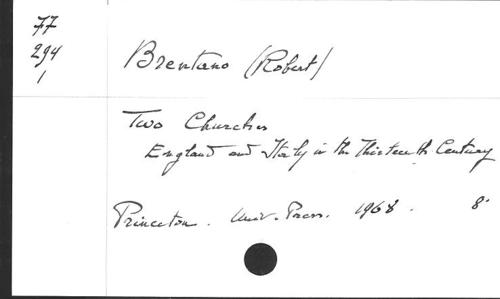 77
294
1
Brentano (Robert)
Two Churches
England and Italy in the Thirteenth Century
Princeton. Univ. Press. 1968. 8°